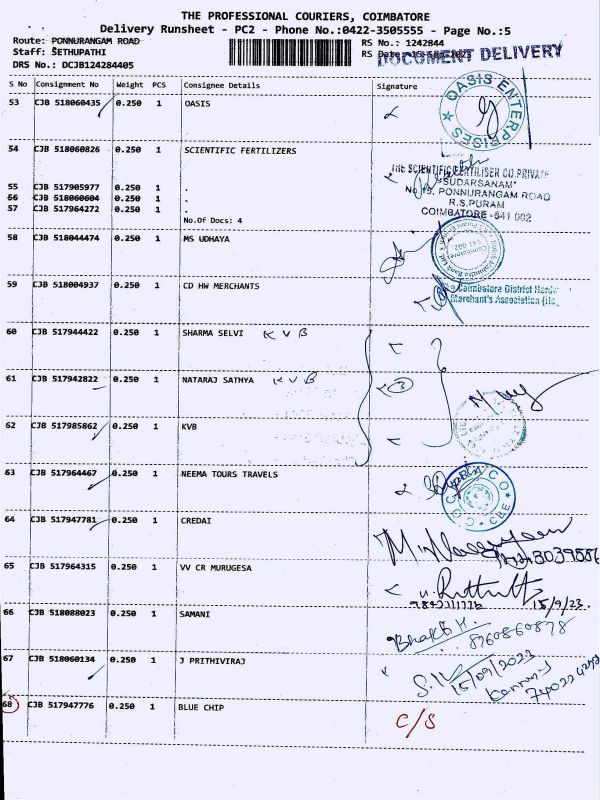 THE PROFESSIONAL COURIERS, COIMBATORE
Delivery Runsheet - PC2 - Phone No.:0422-3505555 - Page No.:5
Route: PONNURANGAM ROAD RS No.: 1242844
Staff: SETHUPATHI RS Date:
DOCUMENT DELIVERY
DRS No.: DCJB124284405
S No Consignment No Weight PCS Consignee Details Signature
53 CJB 518060435 0.250 1 OASIS
OASIS ENTERPRISES
54 CJB 518060826 0.250 1 SCIENTIFIC FERTILIZERS
THE SCIENTIFIC FERTILISER CO. PRIVATE
"SUDARSANAM"
55 CJB 517905977 0.250 1 .
PONNURANGAM ROAD
56 CJB 518060604 0.250 1 .
R.S.PURAM
57 CJB 517964272 0.250 1 .
COIMBATORE - 641 002
No.Of Docs: 4
58 CJB 518044474 0.250 1 MS UDHAYA
59 CJB 518004937 0.250 1 CD HW MERCHANTS
Coimbatore District
Merchant's Association
60 CJB 517944422 0.250 1 SHARMA SELVI KVB
61 CJB 517942822 0.250 1 NATARAJ SATHYA KVB
3
62 CJB 517985862 0.250 1 KVB
63 CJB 517964467 0.250 1 NEEMA TOURS TRAVELS
64 CJB 517947781 0.250 1 CREDAI
65 CJB 517964315 0.250 1 VV CR MURUGESA
15/9/23
66 CJB 518088023 0.250 1 SAMANI
Bhakti H
8760860878
67 CJB 518060134 0.250 1 J PRITHIVIRAJ
15/09/2023
68 CJB 517947776 0.250 1 BLUE CHIP
C/S